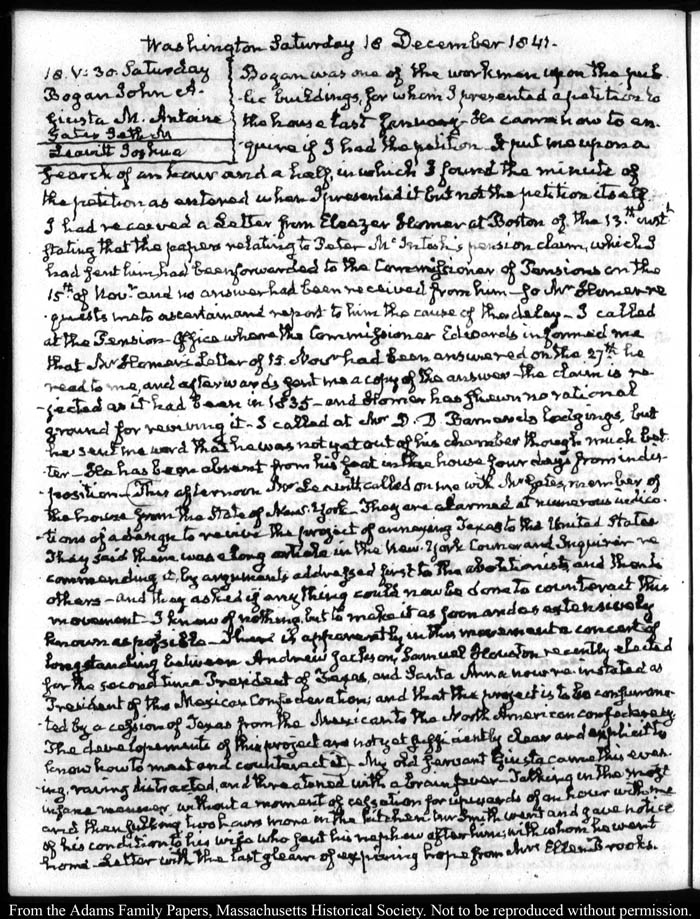 Washington Saturday 18 December 1841.
18. V:30. Saturday
Bogan John A.
Giusta M. Antoine
Gates Seth M
Leavitt Joshua
Bogan was one of the workmen upon the pub-
lic buildings, for whom I presented a petition to
the house last January. He came now to en-
quire if I had the petition. It put me upon a
search of an hour and a half, in which I found the minute of
the petition as entered when I presented it but not the petition itself.
I had received a Letter from Eleazer Homer at Boston of the 13.th inst.t
stating that the papers relating to Peter McIntosh's pension claim, which I
had sent him, had been forwarded to the Commissioner of Pensions on the
15th of Novr. and no answer had been received from him – so Mr Homer re-
quests me to ascertain and report to him the cause of the delay – I called
at the Pension-Office where the Commissioner Edwards informed me
that Mr Homer's Letter of 15. Novr had been answered on the 27th. he
read to me, and afterwards sent me a copy of the answer – the claim is re-
jected as it had been in 1835 – and Homer has shewn no rational
ground for reviving it – I called at Mr D. D Barnard's lodgings, but
he sent me word that he was not yet out of his chamber though much bet-
ter – He has been absent from his seat in the house four days from indis-
position – This afternoon Mr Leavitt called on me with Mr Gates, member of
the house from the State of New-York – They are alarmed at numerous indica-
tions of a design to revive the project of annexing Texas to the United States
They said there was a long article in the New-York Courier and Enquirer re-
commending it, by arguments addressed first to the abolitionists, and then to
others – and they asked if any thing could now be done to counteract this
movement – I knew of nothing, but to make it as soon and as extensively
known as possible – There is apparently in this movement a concert of
long standing between Andrew Jackson, Samuel Houston recently elected
for the second time President of Texas, and Santa Anna now re-instated as
President of the Mexican Confederation; and that the project is to be consumma-
ted by a cession of Texas from the Mexican to the North American confederacy.
The developements of this project are not yet sufficiently clear and explicit to
know how to meet and counteract it – My old servant Giusta came this even-
ing, raving distracted, and threatened with a brain fever – Talking in the most
insane manner without a moment of cessation for upwards of an hour with me
and then full two hours more in the kitchen. Mr Smith went and gave notice
of his condition to his wife who sent his nephew after him, with whom he went
home – Letter with the last gleam of expiring hope from Mrs Ellen Brooks.
From the Adams Family Papers, Massachusetts Historical Society. Not to be reproduced without permission.